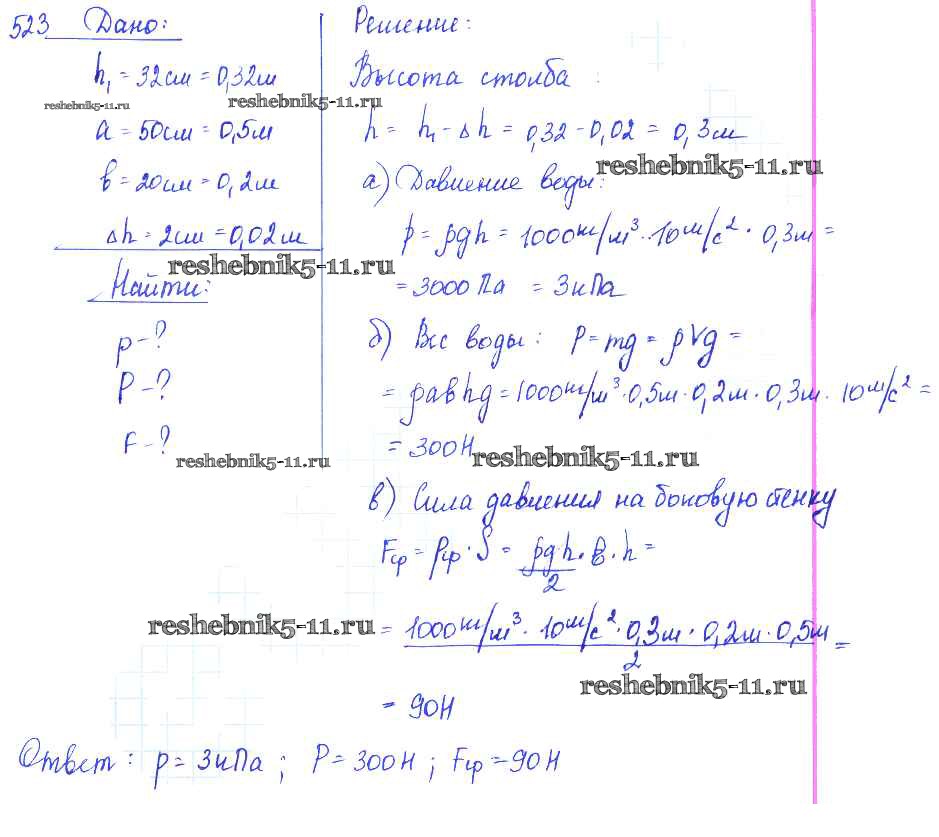 523 Дано:
h₁ = 32см = 0,32м
reshebnik5-11.ru
reshebnik5-11.ru
a = 50см = 0,5м
в = 20см = 0,2м
Δh = 2см = 0,02м
reshebnik5-11.ru
Найти:
p - ?
P - ?
F - ?
reshebnik5-11.ru
Решение:
Высота столба :
h = h₁ - Δh = 0,32 - 0,02 = 0,3м
reshebnik5-11.ru
а) Давление воды:
p = ρgh = 1000кг/м³ · 10м/с² · 0,3м =
= 3000 Па = 3кПа
б) Вес воды: P = mg = ρVg =
= ρавhg = 1000кг/м³ · 0,5м · 0,2м · 0,3м · 10м/с² =
= 300Н
reshebnik5-11.ru
в) Сила давления на боковую стенку
Fср = pср · S = ρgh/2 · в · h =
reshebnik5-11.ru
= 1000кг/м³ · 10м/с² · 0,3м · 0,2м · 0,5м / 2 =
reshebnik5-11.ru
= 90Н
Ответ: p = 3кПа ; P = 300Н ; Fср = 90Н